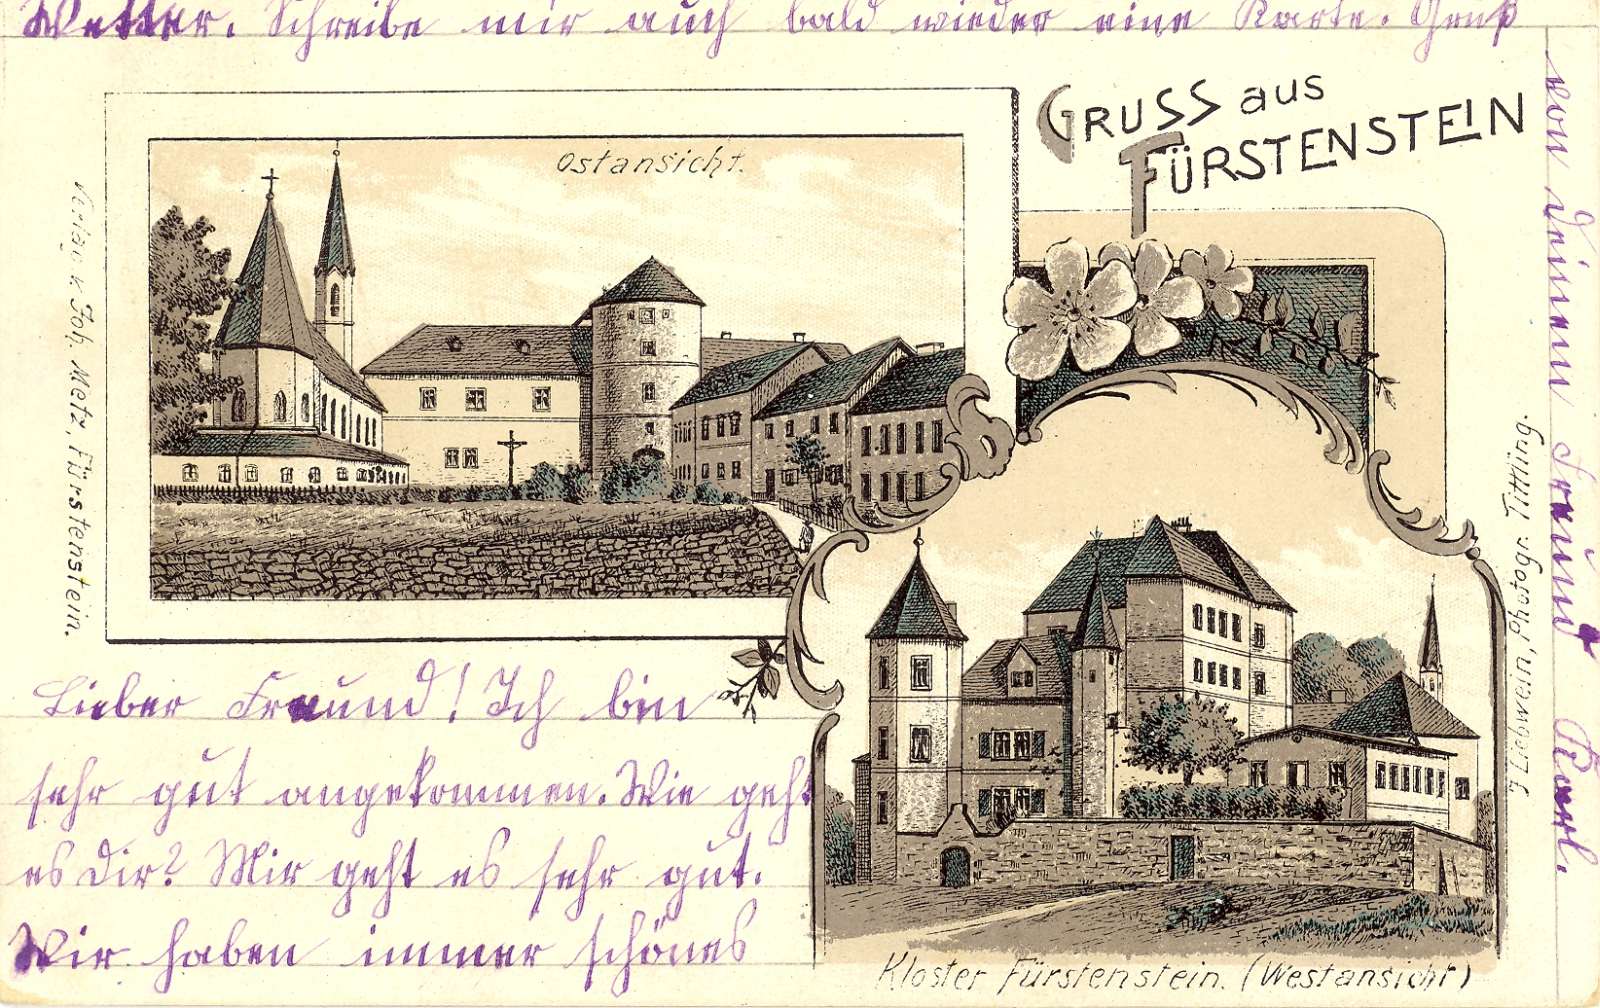 Wetter. Schreibe mir auch bald wieder eine Karte. Gruß
von deinem Freund Karl.
GRUSS aus
FÜRSTENSTEIN
Ostansicht.
Verlag v. Joh. Metz, Fürstenstein.
J Liebwein, Photogr. Tittling.
Lieber Freund! Ich bin
sehr gut angekommen. Wie geht
es Dir? Mir geht es sehr gut.
Wir haben immer schönes
Kloster Fürstenstein. (Westansicht)